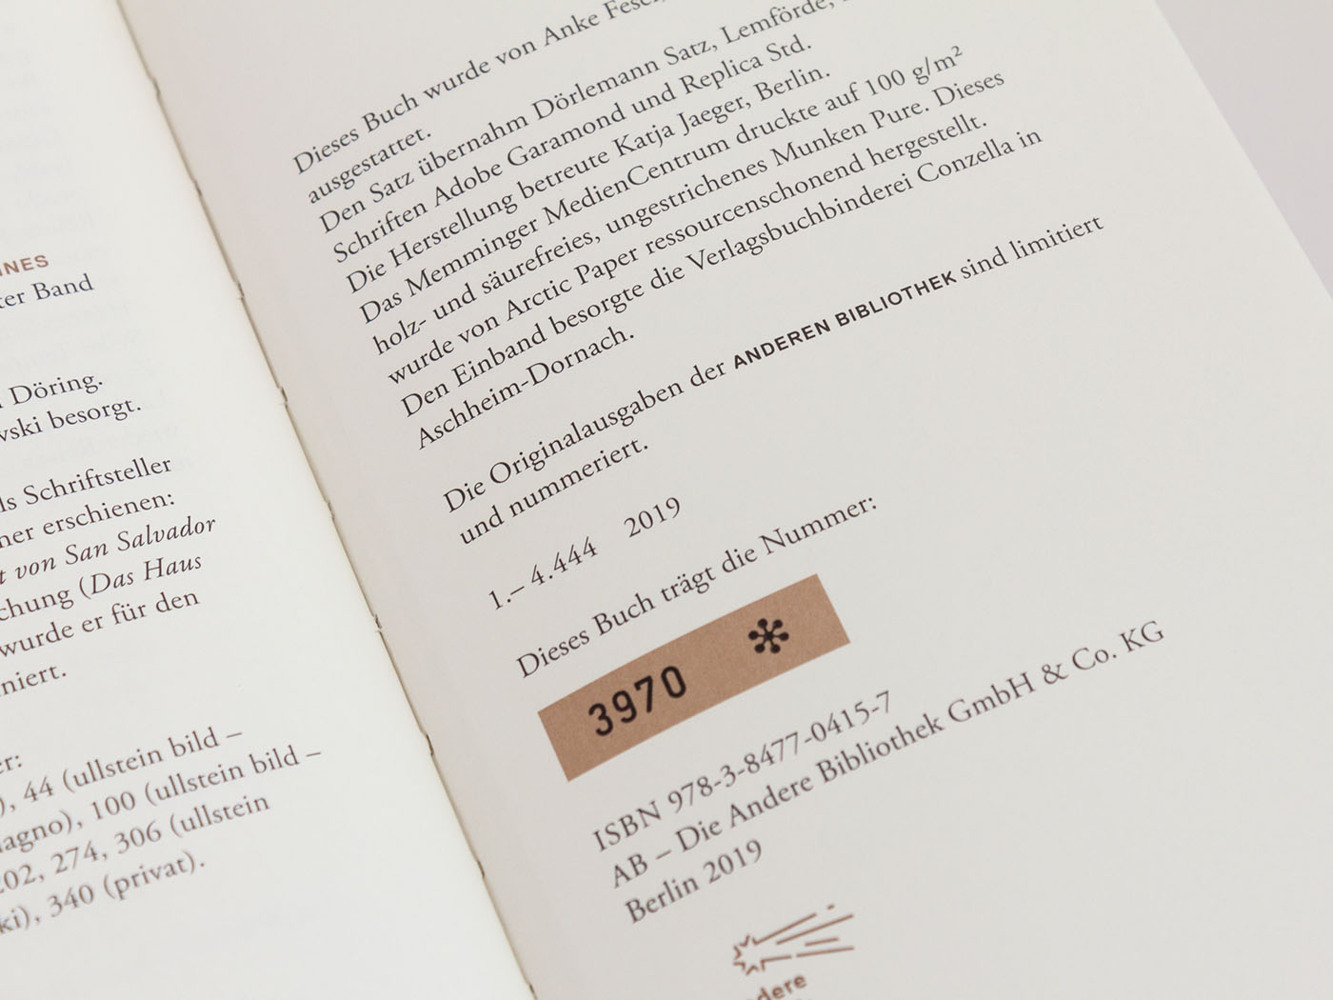 Band
Döring.
besorgt.
Schriftsteller
erschienen:
von San Salvador
(Das Haus
wurde er für den
44 (ullstein bild –
100 (ullstein bild –
274, 306 (ullstein
340 (privat).
Dieses Buch wurde von Anke
ausgestattet.
Den Satz übernahm Dörlemann Satz, Lemförde,
Schriften Adobe Garamond und Replica Std.
Die Herstellung betreute Katja Jaeger, Berlin.
Das Memminger MedienCentrum druckte auf 100 g/m²
holz- und säurefreies, ungestrichenes Munken Pure. Dieses
wurde von Arctic Paper ressourcenschonend hergestellt.
Den Einband besorgte die Verlagsbuchbinderei Conzella in
Aschheim-Dornach.
Die Originalausgaben der ANDEREN BIBLIOTHEK sind limitiert
und nummeriert.
1.– 4.444 2019
Dieses Buch trägt die Nummer:
3970 *
ISBN 978-3-8477-0415-7
AB – Die Andere Bibliothek GmbH & Co. KG
Berlin 2019